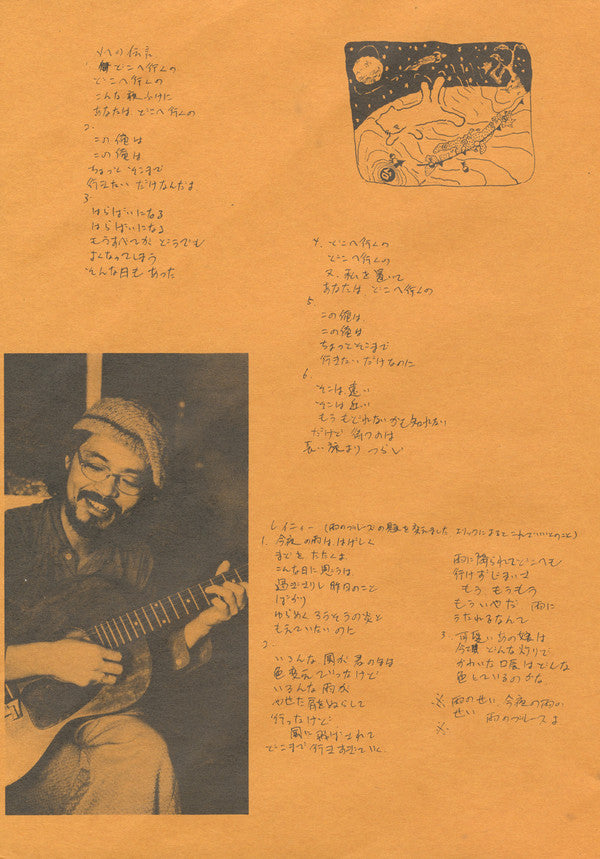 の伝言
1. どこへ行くの
どこへ行くの
こんな夜ふけに
あなたは、どこへ行くの
2.
この俺は
この俺は
ちょっと そこまで
行きたい だけなんだよ
3.
はらばいになる
はらばいになる
もうすべてが どうでも
よくなってしまう
そんな日も あった
4. どこへ行くの
どこへ行くの
又、私を置いて
あなたは、どこへ行くの
5.
この俺は、
この俺は
ちょっとそこまで
行きたい だけなのに
6.
そこは、遠い
そこは 近い
もう もどれないかも知れない
だけど 待つのは
長い旅より つらい
レイニィー (雨のブルースの題を変えました によると これでいいとのこと)
1. 今夜の雨は、はげしく
まどを たたくよ
こんな日に思うは
過ぎさりし 昨日のこと
ばかり
ゆらめく ろうそうの炎と
もえていたいのに
2.
いろんな 風が 君の
色変えていったけど
いろんな 雨が
やせた肩をぬらして
行ったけど
風に
どこまで 行き
雨に降られてどこへも
行けずじまいさ
もう もうもう
もういやだ 雨に
うたれるなんて
3. 可愛い あの娘は
今頃 どんな灯りで
かわいた口唇は どんな
色しているのかな
※ 雨のせい、今夜の雨の
せい 雨のブルースよ
※